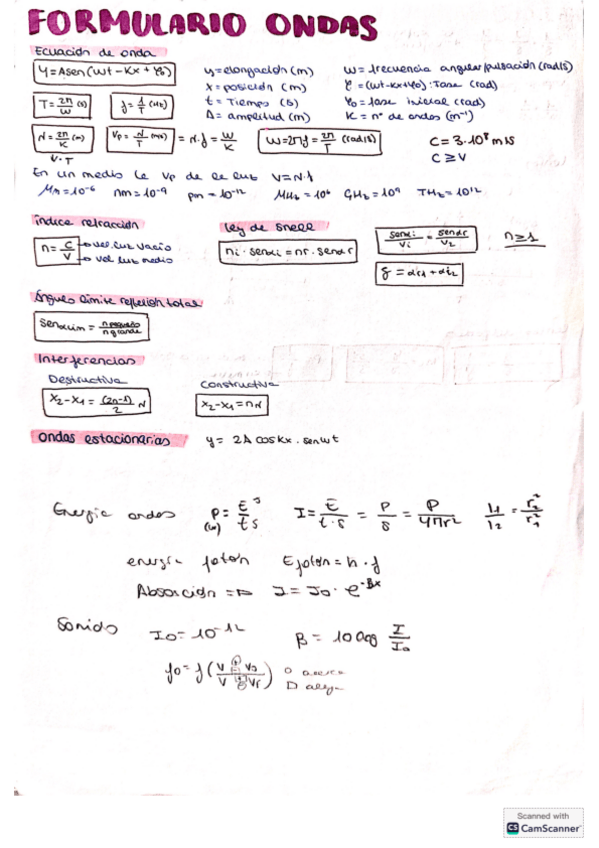 FORMULARIO ONDAS
Ecuación de onda
y = A sen(ωt - Kx + φ₀)
y = elongación (m)
ω = frecuencia angular/pulsación (rad/s)
x = posición (m)
φ = (ωt - Kx + φ₀): Fase (rad)
t = Tiempo (s)
φ₀ = fase inicial (rad)
A = amplitud (m)
K = nº de ondas (m⁻¹)
T = 2π/ω (s)
f = 1/T (Hz)
λ = 2π/K (m)
v·T
Vp = λ/T (m/s) = λ·f = ω/K
ω = 2πf = 2π/T (rad/s)
C = 3·10⁸ m/s
C ≥ V
En un medio la Vp de la luz V = λ·f
μm = 10⁻⁶ nm = 10⁻⁹ pm = 10⁻¹² MHz = 10⁶ GHz = 10⁹ THz = 10¹²
índice refracción
n = C/V → vel luz vacío
→ vel luz medio
ley de snell
ni · senαi = nr · senαr
senαi/V₁ = senαr/V₂
n ≥ 1
δ = αi1 + αi2
Ángulo límite reflexión total
senαlim = n pequeño/n grande
Interferencias
Destructiva
x₂ - x₁ = (2n-1)/2 λ
Constructiva
x₂ - x₁ = nλ
ondas estacionarias y = 2A cosKx · senωt
Energía ondas P = E/t J/s (W) I = E/(t·s) = P/S = P/4πr² I₁/I₂ = r₂²/r₁²
energía fotón Efotón = h · f
Absorción ⇒ I = I₀ · e^-βx
Sonido I₀ = 10⁻¹² β = 10 log I/I₀
f₀ = f (V ± V₀ / V ± Vf) O acerca
□ aleja
Scanned with
CS CamScanner